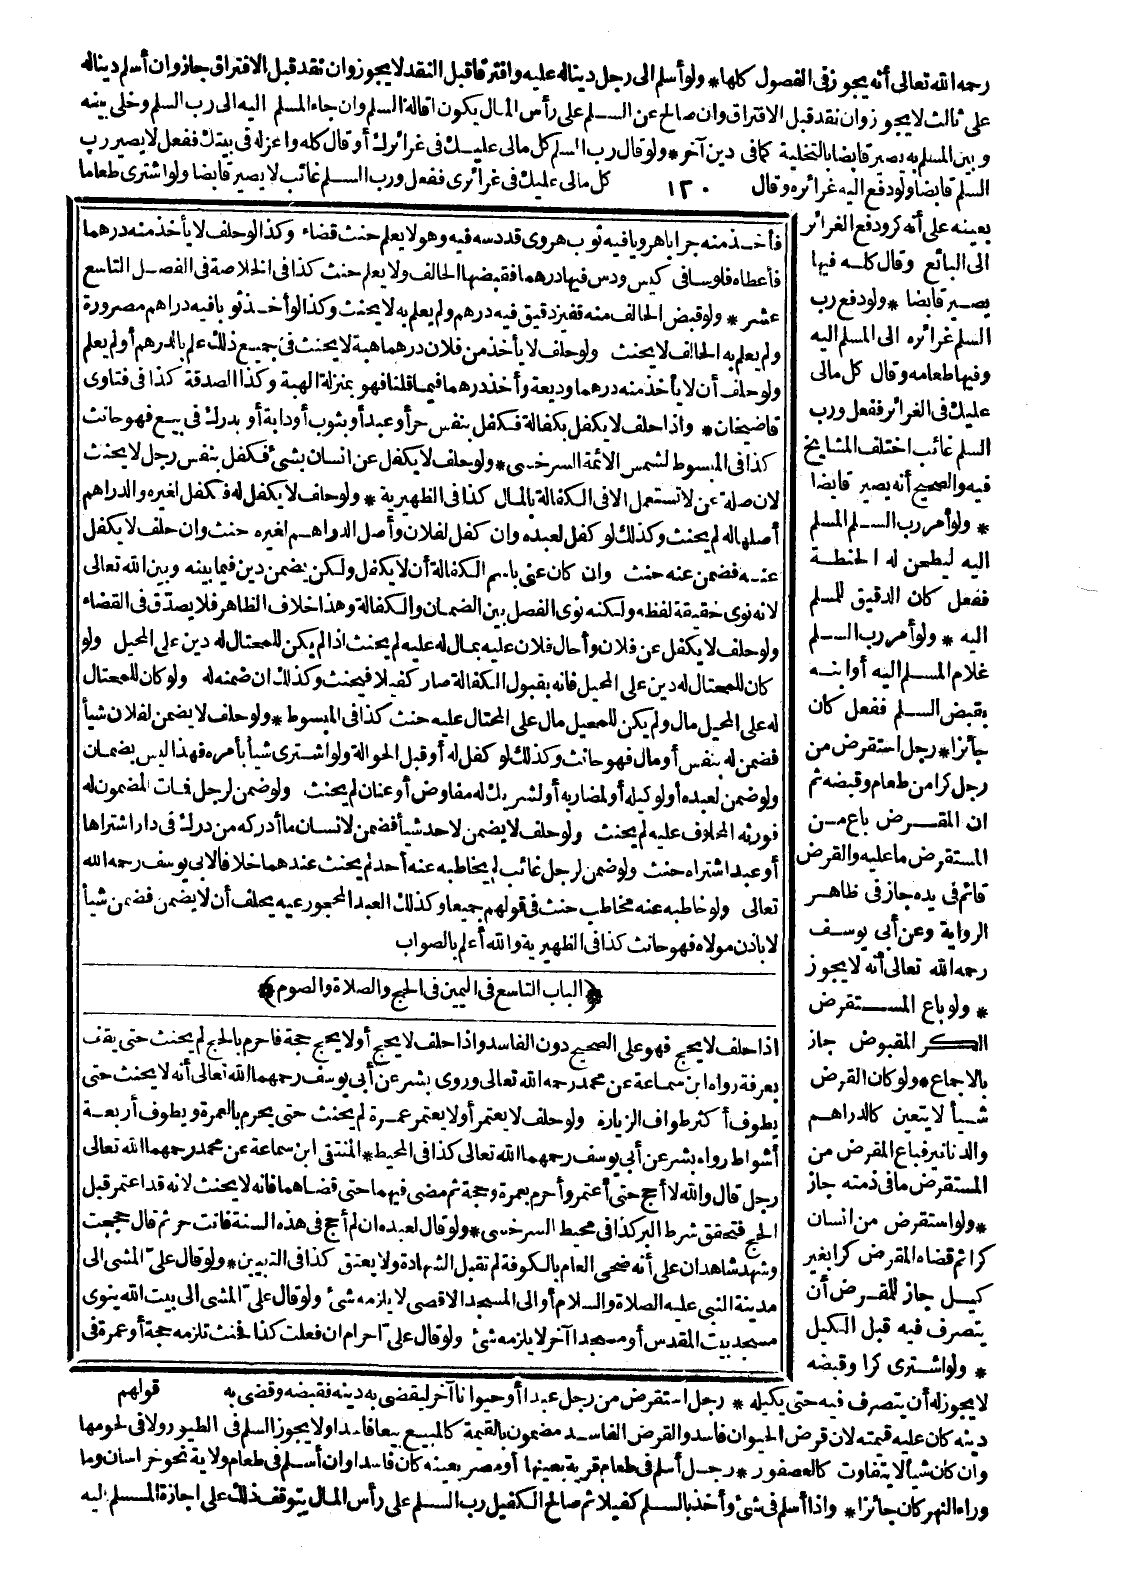 رحمه الله تعالى أنه يجوز فى الفصول كلها * ولو أسلم الى رجل دينا له عليه وافترقا قبل النقد لا يجوز وان نقد قبل الافتراق جاز وان أسلم دينا له
على ثالث لا يجوز وان نقد قبل الافتراق وان صالح عن السلم على رأس المال يكون اقالة السلم وان جاء المسلم اليه الى رب السلم وخلى بينه
وبين المسلم به يصير قابضا بالتخلية كما فى دين آخر * ولو قال رب السلم كل مالى عليك فى غرائرك أو قال كله واعزله فى بيتك ففعل لا يصير رب
السلم قابضا ولو دفع اليه غرائره وقال
١٢٠
كل مالى عليك فى غرائرى ففعل ورب السلم غائب لا يصير قابضا ولو اشترى طعاما
بعينه على أنه كر ودفع الغرائر
الى البائع وقال كله فيها
يصير قابضا * ولو دفع رب
السلم غرائره الى المسلم اليه
وفيها طعامه وقال كل مالى
عليك فى الغرائر ففعل ورب
السلم غائب اختلف المشايخ
فيه والصحيح أنه يصير قابضا
* ولو أمر رب السلم المسلم
اليه ليطحن له الحنطة
ففعل كان الدقيق للمسلم
اليه * ولو أمر رب السلم
غلام المسلم اليه أو ابنه
بقبض السلم ففعل كان
جائزا * رجل استقرض من
رجل كرا من طعام وقبضه ثم
ان المقرض باع من
المستقرض ما عليه والقرض
قائم فى يده جاز فى ظاهر
الرواية وعن أبى يوسف
رحمه الله تعالى أنه لا يجوز
* ولو باع المستقرض
الكر المقبوض جاز
بالاجماع * ولو كان القرض
شيأ لا يتعين كالدراهم
والدنانير فباع المقرض من
المستقرض ما فى ذمته جاز
* ولو استقرض من انسان
كرا ثم قضاه المقرض كرا بغير
كيل جاز للمقرض أن
يتصرف فيه قبل الكيل
* ولو اشترى كرا وقبضه
فأخذ منه جرابا هرويا فيه ثوب هروى قد دسه فيه وهو لا يعلم حنث قضاء وكذا لو حلف لا يأخذ منه درهما
فأعطاه فلوسا فى كيس ودس فيها درهما فقبضها الحالف ولا يعلم حنث كذا فى الخلاصة فى الفصل التاسع
عشر * ولو قبض الحالف منه قفيز دقيق فيه درهم ولم يعلم به لا يحنث وكذا لو أخذ ثوبا فيه دراهم مصرورة
ولم يعلم به الحالف لا يحنث ولو حلف لا يأخذ من فلان درهما هبة لا يحنث فى جميع ذلك علم بالدرهم أو لم يعلم
ولو حلف أن لا يأخذ منه درهما وديعة وأخذ درهما فيما قلنا فهو بمنزلة الهبة وكذا الصدقة كذا فى فتاوى
قاضيخان * واذا حلف لا يكفل بكفالة فكفل بنفس حر أو عبد أو بثوب أو دابة أو بدرك فى بيع فهو حانث
كذا فى المبسوط لشمس الائمة السرخسى * ولو حلف لا يكفل عن انسان بشئ فكفل بنفس رجل لا يحنث
لان صلة عن لا تستعمل الا فى الكفالة بالمال كذا فى الظهيرية * ولو حلف لا يكفل له فكفل لغيره والدراهم
أصلها له لم يحنث وكذلك لو كفل لعبده وان كفل لفلان وأصل الدراهم لغيره حنث وان حلف لا يكفل
عنه فضمن عنه حنث وان كان عنى باسم الكفالة أن لا يكفل ولكن يضمن دين فيما بينه وبين الله تعالى
لانه نوى حقيقة لفظه ولكنه نوى الفصل بين الضمان والكفالة وهذا خلاف الظاهر فلا يصدّق فى القضاء
ولو حلف لا يكفل عن فلان وأحال فلان عليه بمال له عليه لم يحنث اذا لم يكن للمحتال له دين على المحيل ولو
كان للمحتال له دين على المحيل فانه بقبول الكفالة صار كفيلا فيحنث وكذلك ان ضمنه له ولو كان للمحتال
له على المحيل مال ولم يكن للمحيل مال على المحتال عليه حنث كذا فى المبسوط * ولو حلف لا يضمن لفلان شيأ
فضمن له بنفس أو مال فهو حانث وكذلك لو كفل له أو قبل الحوالة ولو اشترى شيأ بأمره فهذا ليس بضمان
ولو ضمن لعبده أو لوكيله أو لمضاربه أو لشريك له مفاوض أو عنان لم يحنث ولو ضمن لرجل فمات المضمون له
فورثه المحلوف عليه لم يحنث ولو حلف لا يضمن لاحد شيأ فضمن لانسان ما أدركه من درك فى دار اشتراها
أو عبد اشتراه حنث ولو ضمن لرجل غائب لم يخاطبه عنه أحد لم يحنث عندهما خلافا لابى يوسف رحمه الله
تعالى ولو خاطبه عنه مخاطب حنث فى قولهم جميعا وكذلك العبد المحجور عليه يحلف أن لا يضمن فضمن شيأ
لا باذن مولاه فهو حانث كذا فى الظهيرية والله أعلم بالصواب
﴿الباب التاسع فى اليمين فى الحج والصلاة والصوم﴾
اذا حلف لا يحج فهو على الصحيح دون الفاسد واذا حلف لا يحج أو لا يحج حجة فاحرم بالحج لم يحنث حتى يقف
بعرفة رواه ابن سماعة عن محمد رحمه الله تعالى وروى بشر عن أبى يوسف رحمهما الله تعالى أنه لا يحنث حتى
يطوف أكثر طواف الزيارة ولو حلف لا يعتمر أو لا يعتمر عمرة لم يحنث حتى يحرم بالعمرة ويطوف أربعة
أشواط رواه بشر عن أبى يوسف رحمهما الله تعالى كذا فى المحيط * المنتقى ابن سماعة عن محمد رحمهما الله تعالى
رجل قال والله لا أحج حتى أعتمر وأحرم بعمرة وحجة ثم مضى فيهما حتى قضاهما فانه لا يحنث لانه قد اعتمر قبل
الحج فتحقق شرط البر كذا فى محيط السرخسى * ولو قال لعبده ان لم أحج فى هذه السنة فانت حر ثم قال حججت
وشهد شاهدان على أنه ضحى العام بالكوفة لم تقبل الشهادة ولا يعتق كذا فى التبيين * ولو قال علىّ المشى الى
مدينة النبى عليه الصلاة والسلام أو الى المسجد الاقصى لا يلزمه شئ ولو قال علىّ المشى الى بيت الله ينوى
مسجد بيت المقدس أو مسجدا آخر لا يلزمه شئ ولو قال علىّ احرام ان فعلت كذا فحنث تلزمه حجة أو عمرة فى
قولهم
لا يجوز له أن يتصرف فيه حتى يكيله * رجل استقرض من رجل عبدا أو حيوانا آخر ليقضى به دينه فقبضه وقضى به
دينه كان عليه قيمته لان قرض الحيوان فاسد والقرض الفاسد مضمون بالقيمة كالمبيع بيعا فاسدا ولا يجوز السلم فى الطيور ولا فى لحومها
وان كان شيأ لا يتفاوت كالعصفور * رجل أسلم فى طعام قرية بعينها أو مصر بعينه كان فاسدا وان أسلم فى طعام ولاية نحو خراسان وما
وراء النهر كان جائزا * واذا أسلم فى شئ وأخذ بالسلم كفيلا ثم صالح الكفيل رب السلم على رأس المال يتوقف ذلك على اجازة المسلم اليه